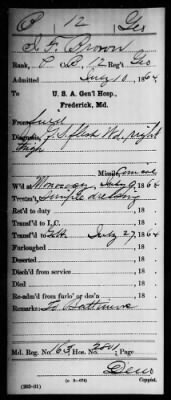 P 12 Geo
J. F. Brown
Rank, P Co. B, 12 Reg't Geo
Admitted July 10, 1864
To
U. S. A. Gen'l Hosp.,
Frederick, Md.
From field
Diagnosis, G.S. flesh Wd. right
thigh
Missile, Con. ball
W'd at Monocacy, July 9, 1864
Treatm't, Simple dressing
Ret'd to duty , 186
Transf'd to I. C. , 186
Transf'd to July 27, 1864
Furloughed , 186
Deserted , 186
Disch'd from service , 186
Died , 186
Re-adm'd from furlo' or des'n , 186
Remarks: To Baltimore
Md. Reg. No. 163; Hos. No. ; Page
Copyist.